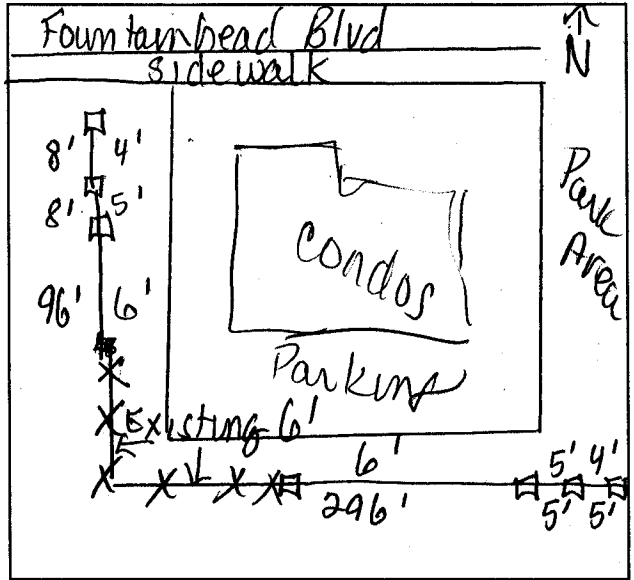 Fountainhead Blvd
sidewalk
N
8' 4'
8' 5'
96' 6'
Condos
Park
Area
Parking
Existing 6'
6'
296'
5' 4'
5' 5'